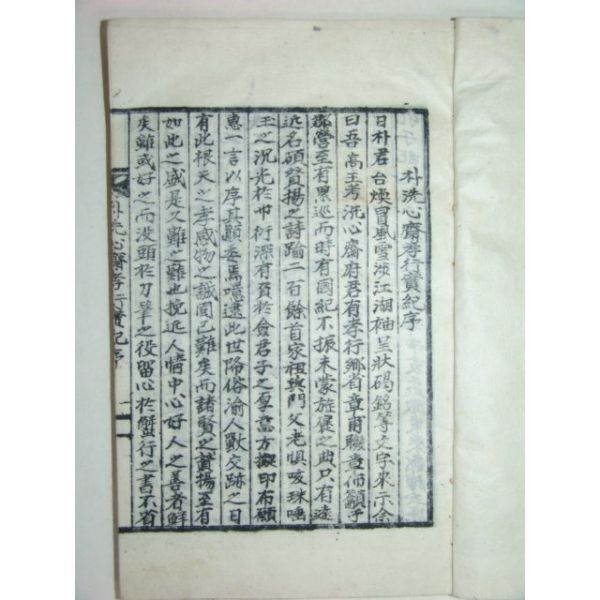 朴洗心齋孝行實紀序
日朴君台煐冒風雪涉江湖袖呈狀碣銘等文字來示余
曰吾高王考洗心齋府君有孝行鄉省章甫聯章佈籲于
郡營至有黑巡而時有國紀不振未蒙旌褒之典只有遠
近名碩賛揚之詩踰二百餘首家祖與門父老懼咳珠唾
玉之沉光於巾衍深有負於僉君子之厚意方擬印布願
惠一言以序其顚委焉噫遽此世降俗渝人獸交跡之日
有此根天之孝感物之誠固已難矣而諸賢之賛揚至有
如此之盛是又難之難也挽近人情中心好人之善者鮮
矣雖或好之而没頭於刀筆之役留心於蟹行之書不省
朴洗心齋孝行實紀序
一